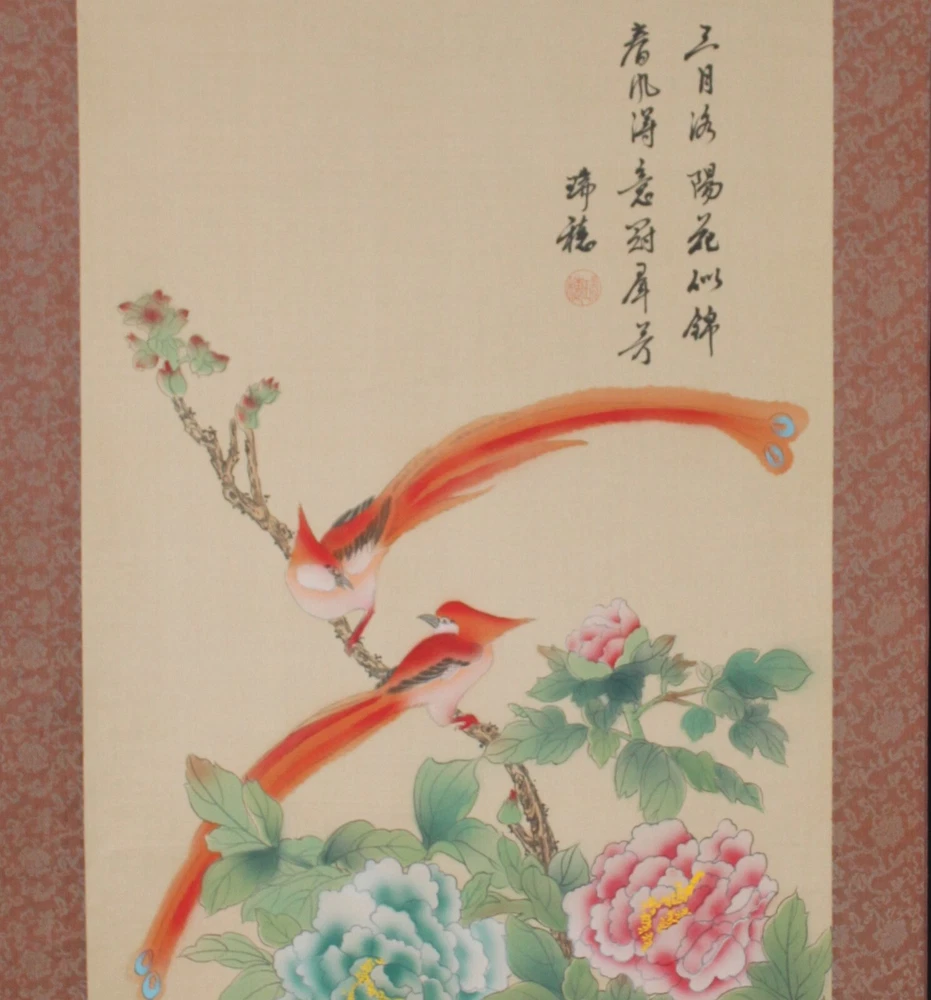 三月洛陽花似錦
春風得意冠羣芳
瑞穂